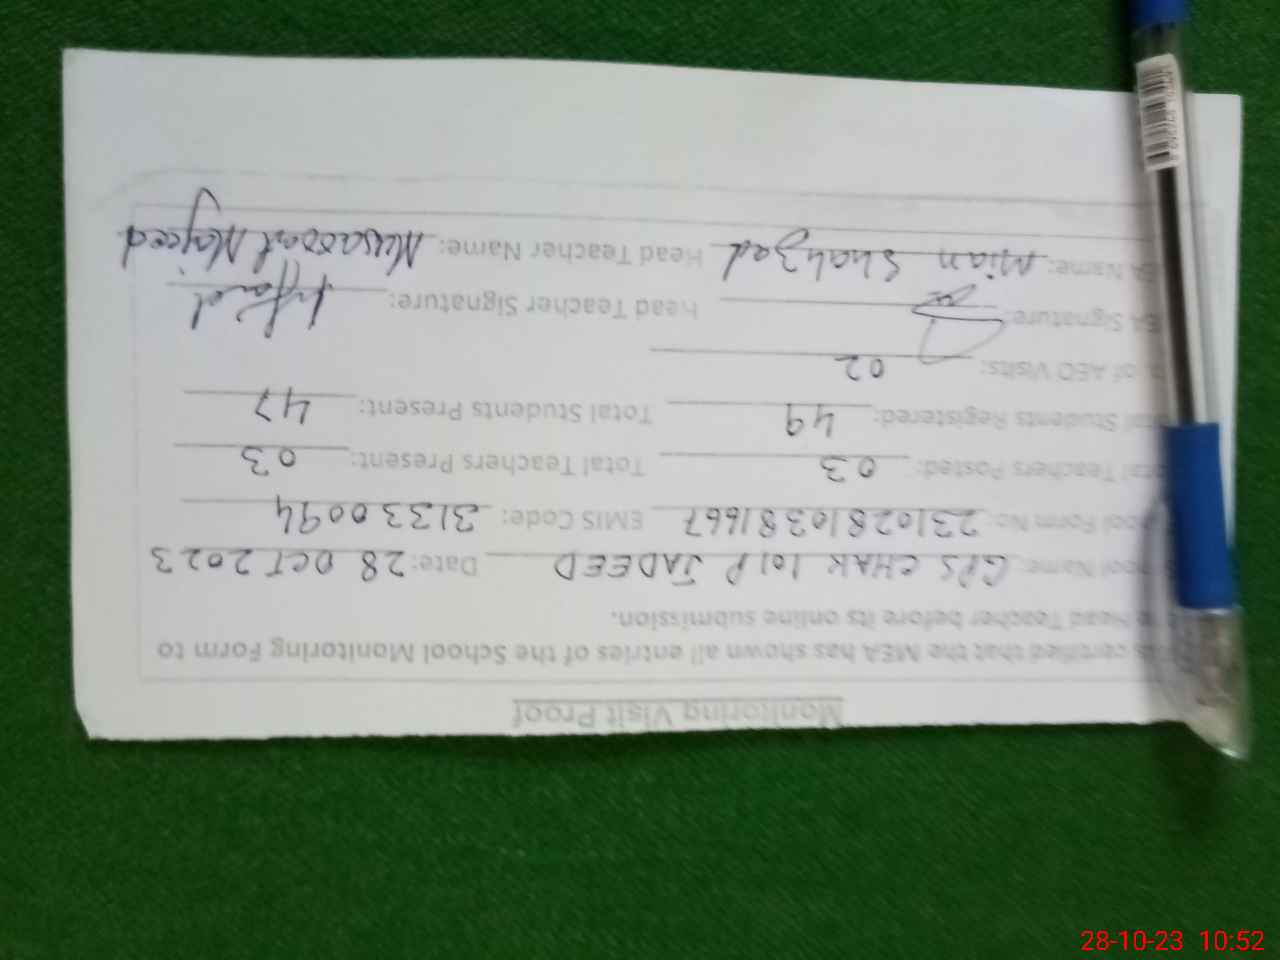 Monitoring Visit Proof
is certified that the MEA has shown all entries of the School Monitoring Form to
Head Teacher before its online submission.
School Name: GPS CHAK 101P JADEED Date: 28 OCT 2023
School Form No: 23102810381667 EMIS Code: 31330094
Total Teachers Posted: 03 Total Teachers Present: 03
Total Students Registered: 49 Total Students Present: 47
of AEO Visits: 02
MEA Signature: Head Teacher Signature:
MEA Name: Mian Shahzad Head Teacher Name: Musarrat Majeed
28-10-23 10:52